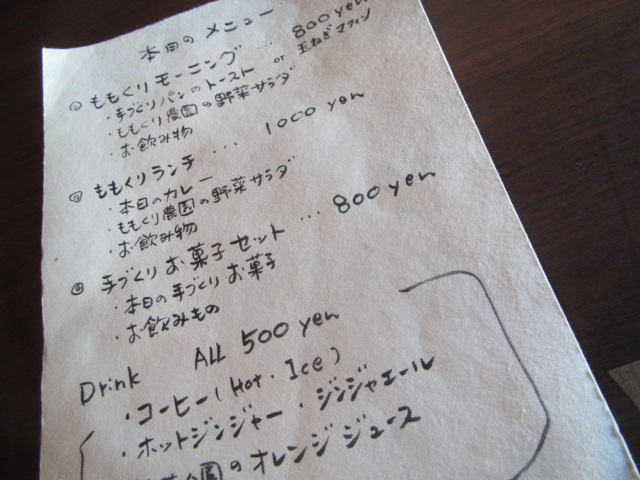 本日のメニュー
◎ ももくりモーニング ... 800 yen
・手づくりパンのトースト or 玉ねぎマフィン
・ももくり農園の野菜サラダ
・お飲み物
◎ ももくりランチ ... 1000 yen
・本日のカレー
・ももくり農園の野菜サラダ
・お飲み物
◎ 手づくりお菓子セット ... 800 yen
・本日の手づくりお菓子
・お飲みもの
Drink ALL 500 yen
・コーヒー(Hot・Ice)
・ホットジンジャー・ジンジャエール
園のオレンジジュース